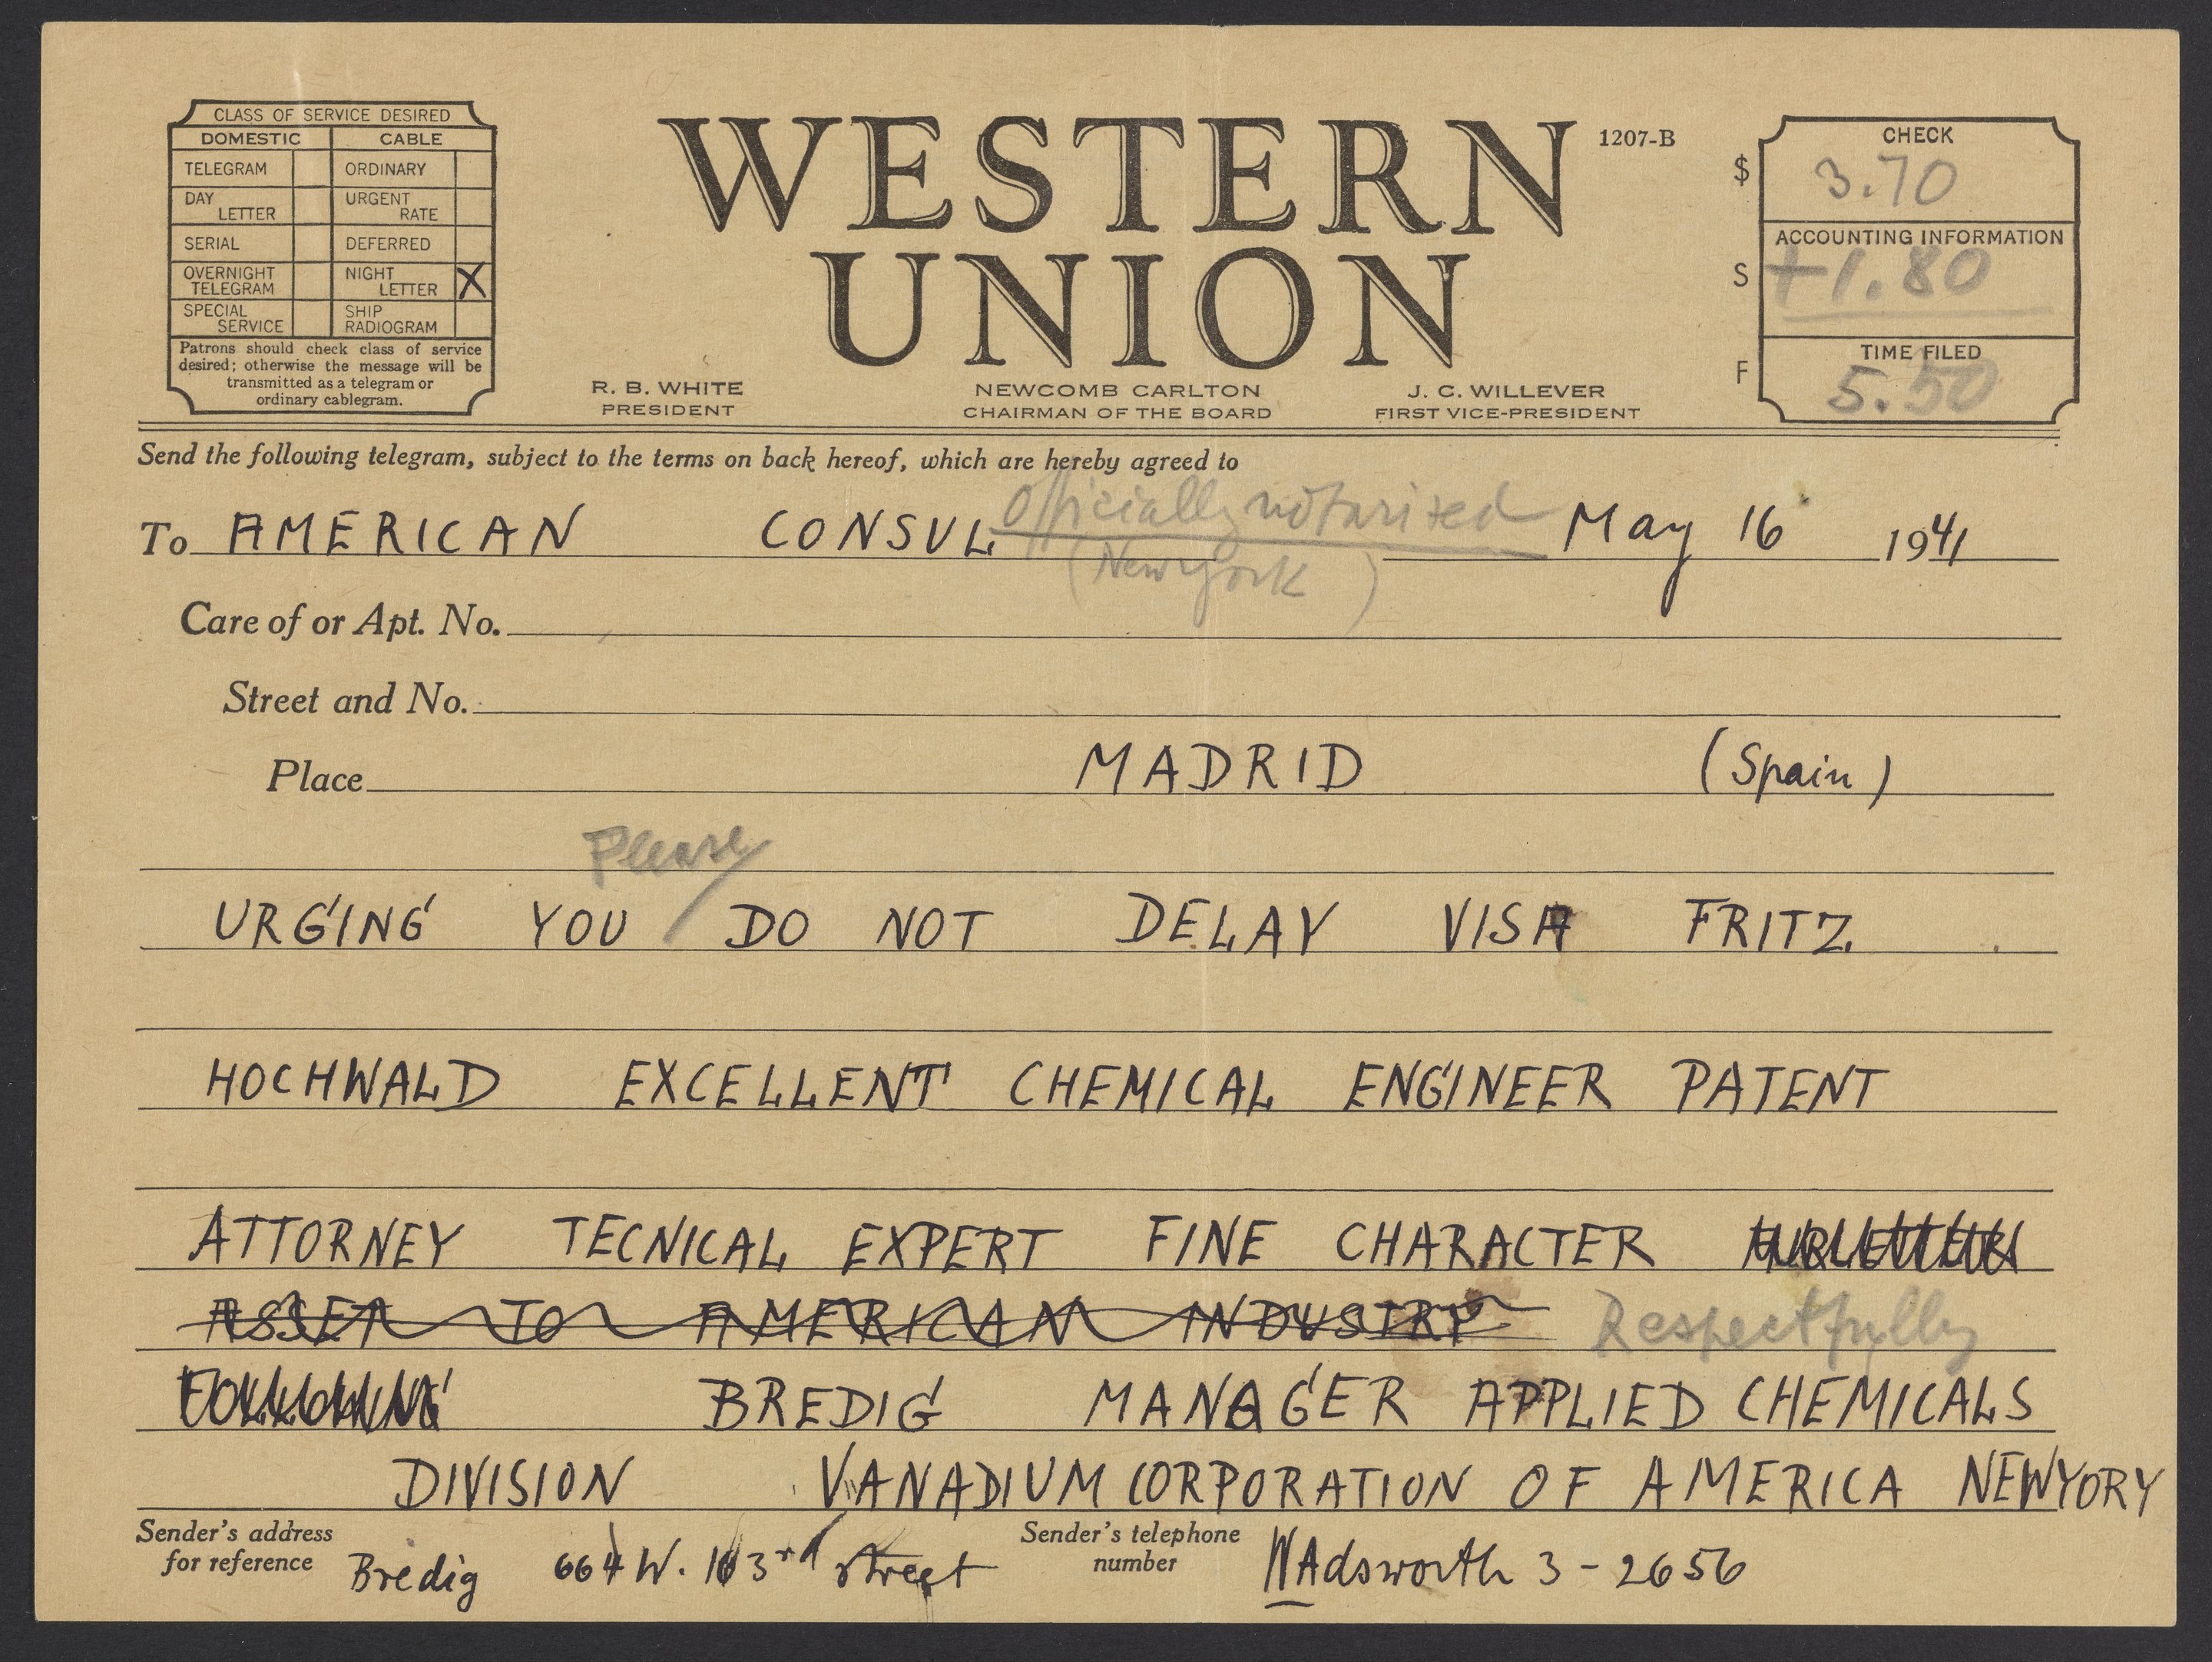 CLASS OF SERVICE DESIRED
DOMESTIC CABLE
TELEGRAM ORDINARY
DAY LETTER URGENT RATE
SERIAL DEFERRED
OVERNIGHT TELEGRAM NIGHT LETTER X
SPECIAL SERVICE SHIP RADIOGRAM
Patrons should check class of service
desired; otherwise the message will be
transmitted as a telegram or
ordinary cablegram.
WESTERN
UNION
1207-B
R. B. WHITE
PRESIDENT
NEWCOMB CARLTON
CHAIRMAN OF THE BOARD
J. C. WILLEVER
FIRST VICE-PRESIDENT
CHECK
$ 3.70
ACCOUNTING INFORMATION
S +1.80
TIME FILED
F 5.50
Send the following telegram, subject to the terms on back hereof, which are hereby agreed to
Officially notarised
To AMERICAN CONSUL May 16 1941
(New York)
Care of or Apt. No.
Street and No.
Place MADRID (Spain)
Please
URGING YOU DO NOT DELAY VISA FRITZ
HOCHWALD EXCELLENT CHEMICAL ENGINEER PATENT
ATTORNEY TECNICAL EXPERT FINE CHARACTER
ASSET TO AMERICAN INDUSTRY Respectfully
BREDIG MANAGER APPLIED CHEMICALS
DIVISION VANADIUM CORPORATION OF AMERICA NEWYORY
Sender's address
for reference Bredig 664 W. 163rd street
Sender's telephone
number WAdsworth 3-2656